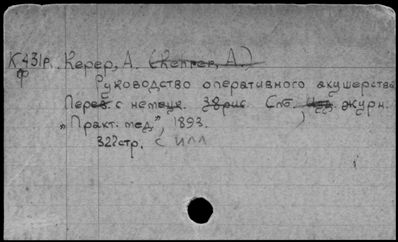 К 431р. Керер, А. (Керрер, А.)
ф
Руководство оперативного акушерства
Перев. с немецк. 38 рис. Спб. Изд. журн.
„Практ. мед.", 1893.
322 стр. с илл